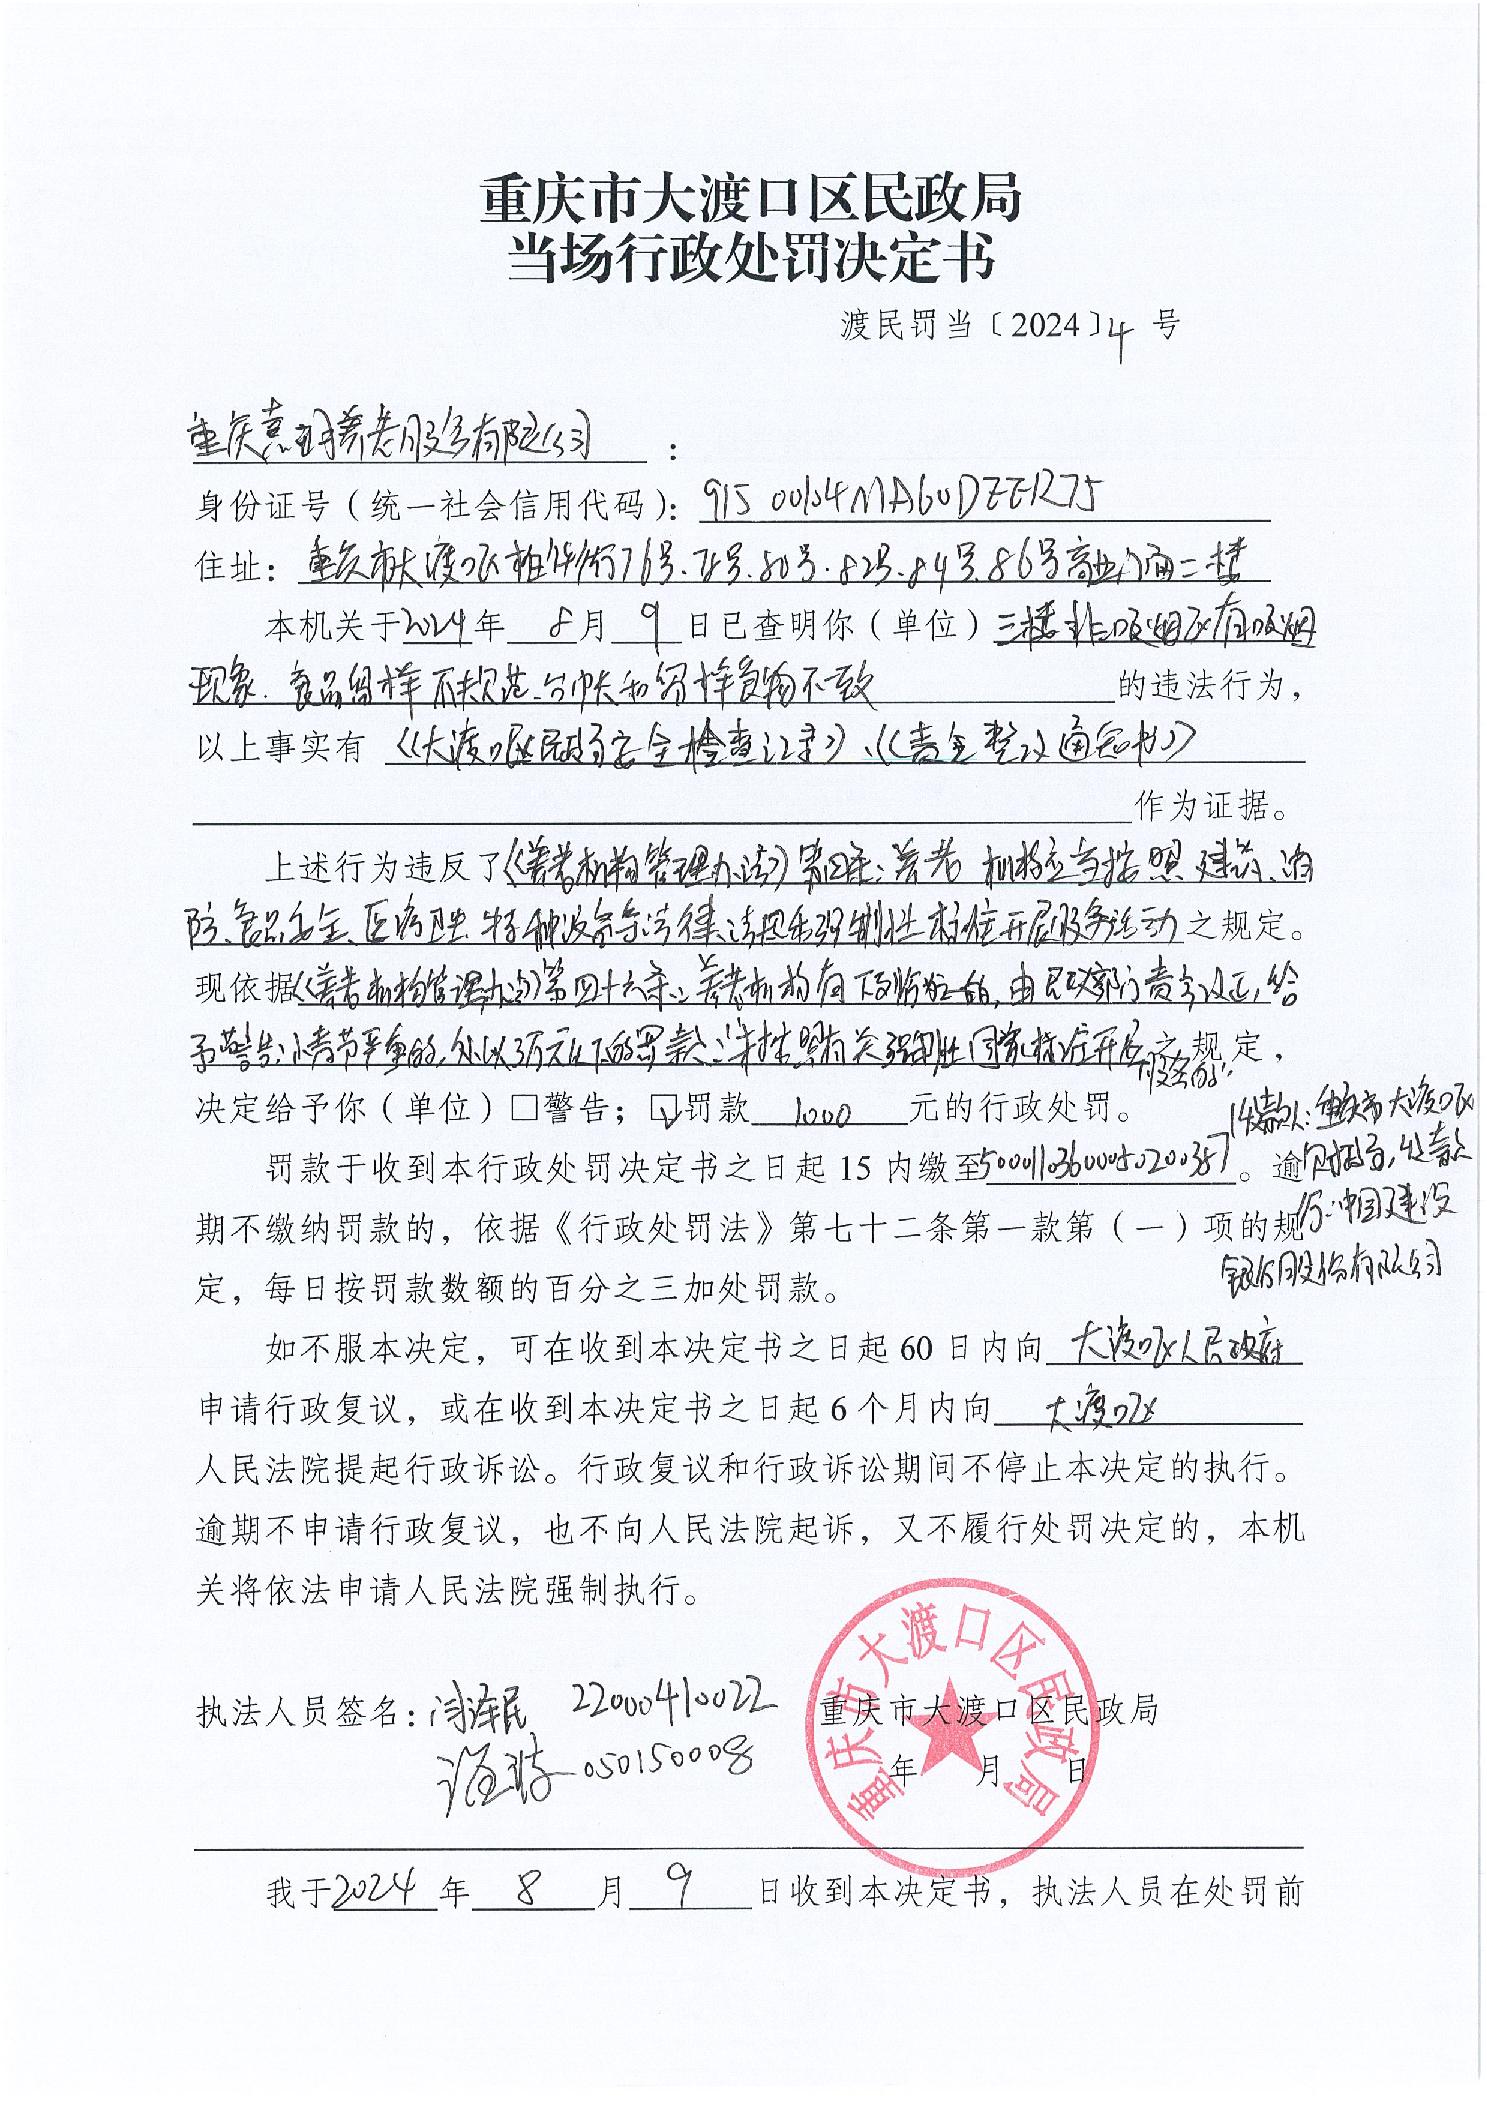 重庆市大渡口区民政局
当场行政处罚决定书
渡民罚当〔2024〕4 号
重庆熹玥养老服务有限公司：
身份证号（统一社会信用代码）：
住址：重庆市大渡口区柏华街76号、78号、80号、82号、84号、86号商业门面二楼
本机关于2024年 8月 9日已查明你（单位）三楼非吸烟区有吸烟
现象、食品留样不规范、台帐和留样食物不一致的违法行为，
以上事实有《大渡口区民政局安全检查记录》、《责令整改通知书》
作为证据。
上述行为违反了《养老机构管理办法》第四条：养老机构应当按照建筑、消
防、食品安全、医疗卫生、特种设备等法律、法规和强制性标准开展服务活动之规定。
现依据《养老机构管理办法》第四十六条：养老机构有下列情形的，由民政部门责令改正，给
予警告；情节严重的，处以3万元以下的罚款：未按照有关强制性国家标准开展之规定，
服务的
决定给予你（单位）□警告；☑罚款 1000 元的行政处罚。
收款人：重庆市大渡口区
罚款于收到本行政处罚决定书之日起 15 内缴至50001103600050200357。逾
财政局，收款
期不缴纳罚款的，依据《行政处罚法》第七十二条第一款第（一）项的规
行：中国建设
定，每日按罚款数额的百分之三加处罚款。
银行股份有限公司
如不服本决定，可在收到本决定书之日起 60 日内向 大渡口区人民政府
申请行政复议，或在收到本决定书之日起 6 个月内向 大渡口区
人民法院提起行政诉讼。行政复议和行政诉讼期间不停止本决定的执行。
逾期不申请行政复议，也不向人民法院起诉，又不履行处罚决定的，本机
关将依法申请人民法院强制执行。
重庆市大渡口区民政局
执法人员签名： 22000410022 重庆市大渡口区民政局
050150008 年 月 日
我于2024 年 8 月 9 日收到本决定书，执法人员在处罚前